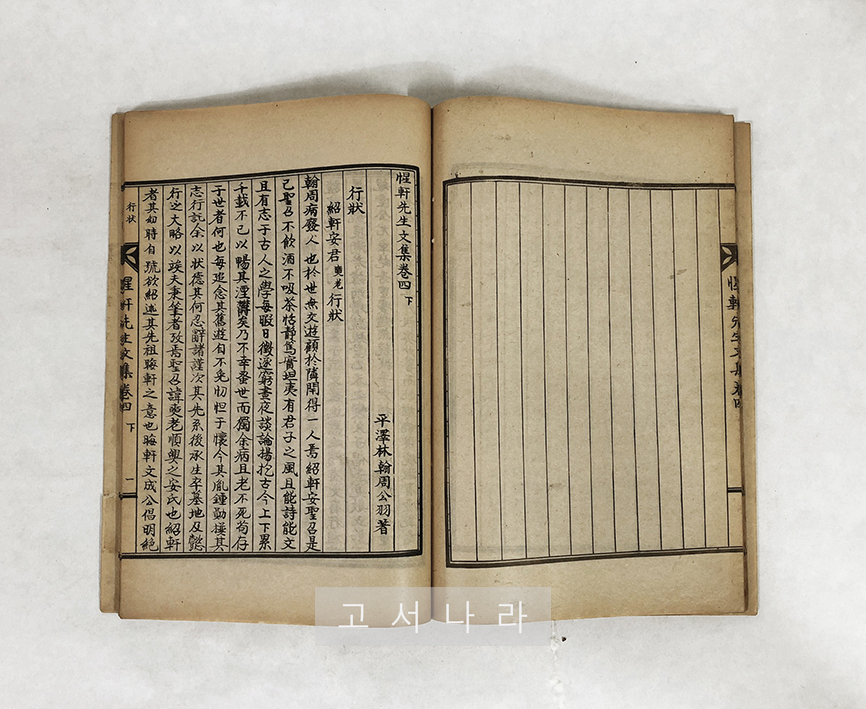 惺軒先生文集卷四
惺軒先生文集卷四 下
平澤林翰周公羽著
行狀
紹軒安君奭老行狀
翰周病廢人也於世無交遊顧於隣閈得一人焉紹軒安聖召是
已聖召不飲酒不吸茶恬靜篤實坦夷有君子之風且能詩能文
且有志于古人之學每暇日徵逐窮晝夜談論揚扢古今上下累
千載不已以暢其湮鬱矣乃不幸蚤世而獨余病且老不死苟存
于世者何也每追念其舊遊自不免忉怛于懷今其胤鍾勳樸其
志行託余以狀德其何忍辭諸謹次其先系後承生卒墓地及懿
行之大略以竢夫秉筆者攷焉聖召諱奭老順興之安氏也紹軒
者其初時自號欲紹述其先祖晦軒之意也晦軒文成公倡明絕
行狀
惺軒先生文集卷四 下 一
고서나라